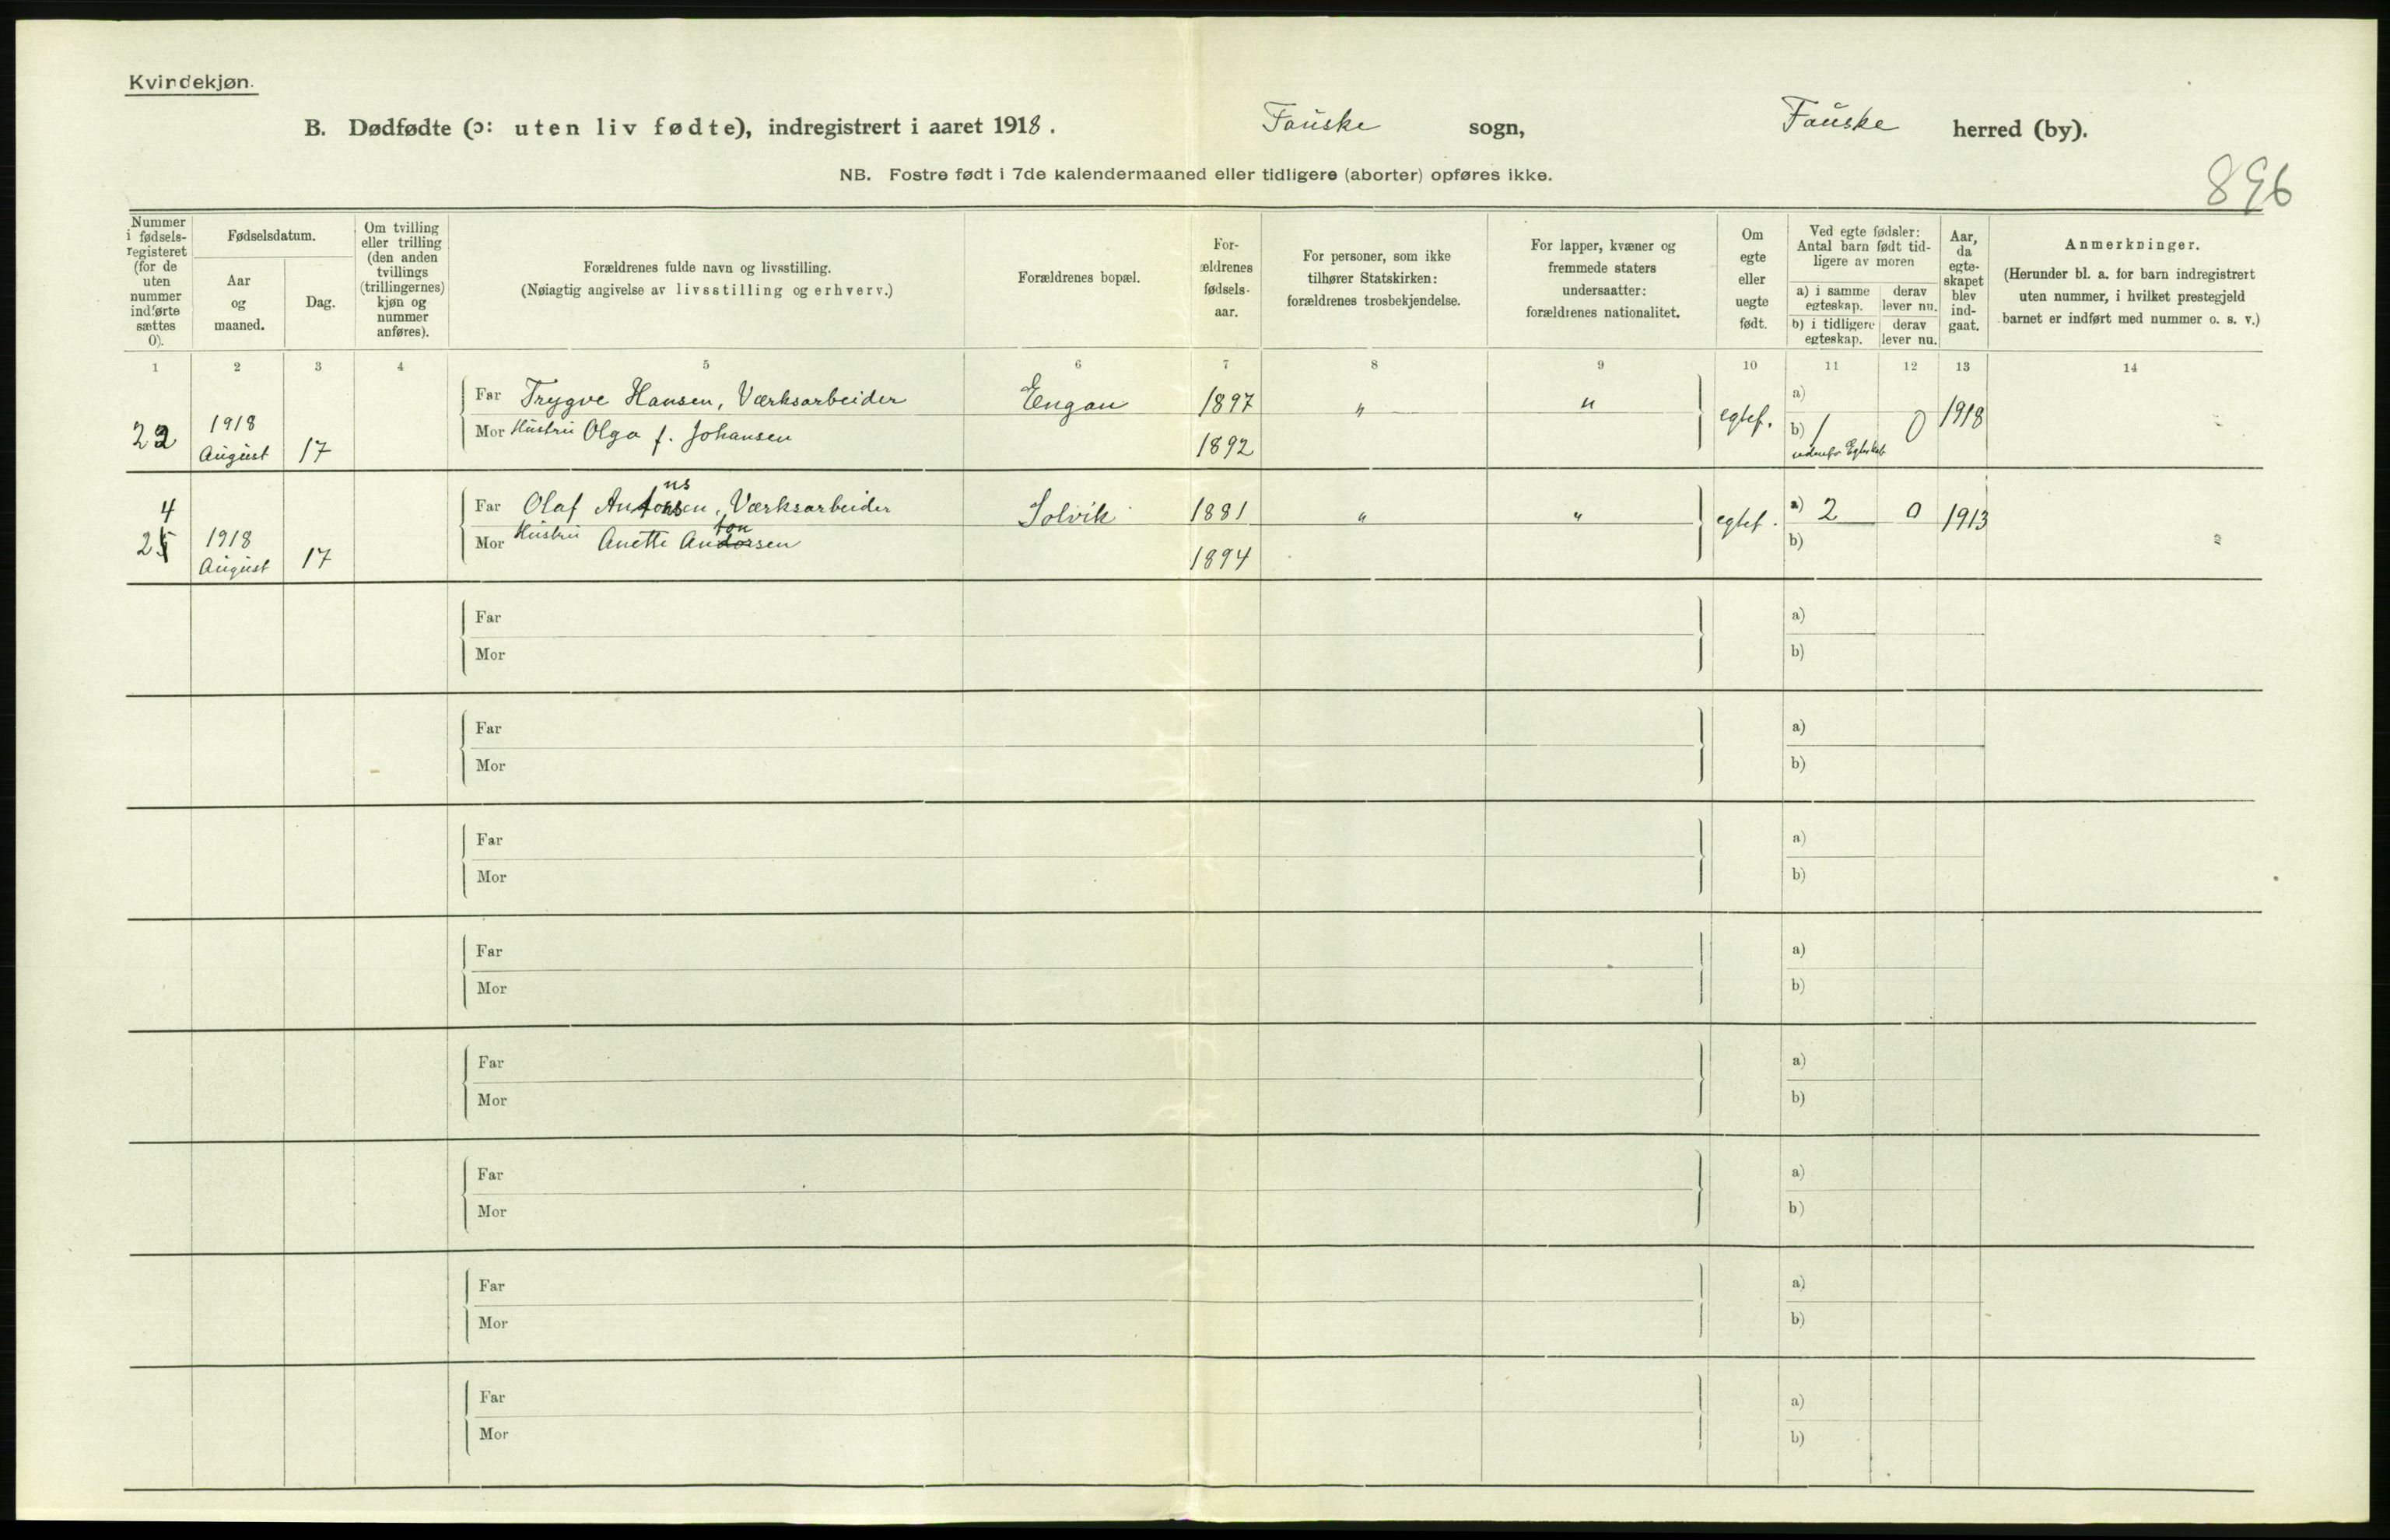 Kvindekjøn.
B. Dødfødte (ɔ: uten liv fødte), indregistrert i aaret 1918. Fauske sogn, Fauske herred (by).
NB. Fostre født i 7de kalendermaaned eller tidligere (aborter) opføres ikke.
896
Nummer i fødselsregisteret (for de uten nummer indførte sættes 0).
Fødselsdatum.
Aar og maaned.
Dag.
Om tvilling eller trilling (den anden tvillings (trillingernes) kjøn og nummer anføres).
Forældrenes fulde navn og livsstilling.
(Nøiagtig angivelse av livsstilling og erhverv.)
Forældrenes bopæl.
Forældrenes fødselsaar.
For personer, som ikke tilhører Statskirken: forældrenes trosbekjendelse.
For lapper, kvæner og fremmede staters undersaatter: forældrenes nationalitet.
Om egte eller uegte født.
Ved egte fødsler: Antal barn født tidligere av moren
a) i samme egteskap. derav lever nu.
b) i tidligere egteskap. derav lever nu.
Aar, da egteskapet blev indgaat.
Anmerkninger.
(Herunder bl. a. for barn indregistrert uten nummer, i hvilket prestegjeld barnet er indført med nummer o. s. v.)
1 2 3 4 5 6 7 8 9 10 11 12 13 14
22 1918 August 17 Far Trygve Hansen, Værksarbeider Engan 1897 " " egtef. a) 1918
Mor Hustru Olga f. Johansen 1892 b) 1 0
udenfor Egteskab
24 1918 August 17 Far Olaf Antonsen, Værksarbeider Solvik 1881 " " egtef. a) 2 0 1913
Mor Hustru Anette Antonsen 1894 b)
Far a)
Mor b)
Far a)
Mor b)
Far a)
Mor b)
Far a)
Mor b)
Far a)
Mor b)
Far a)
Mor b)
Far a)
Mor b)
Far a)
Mor b)